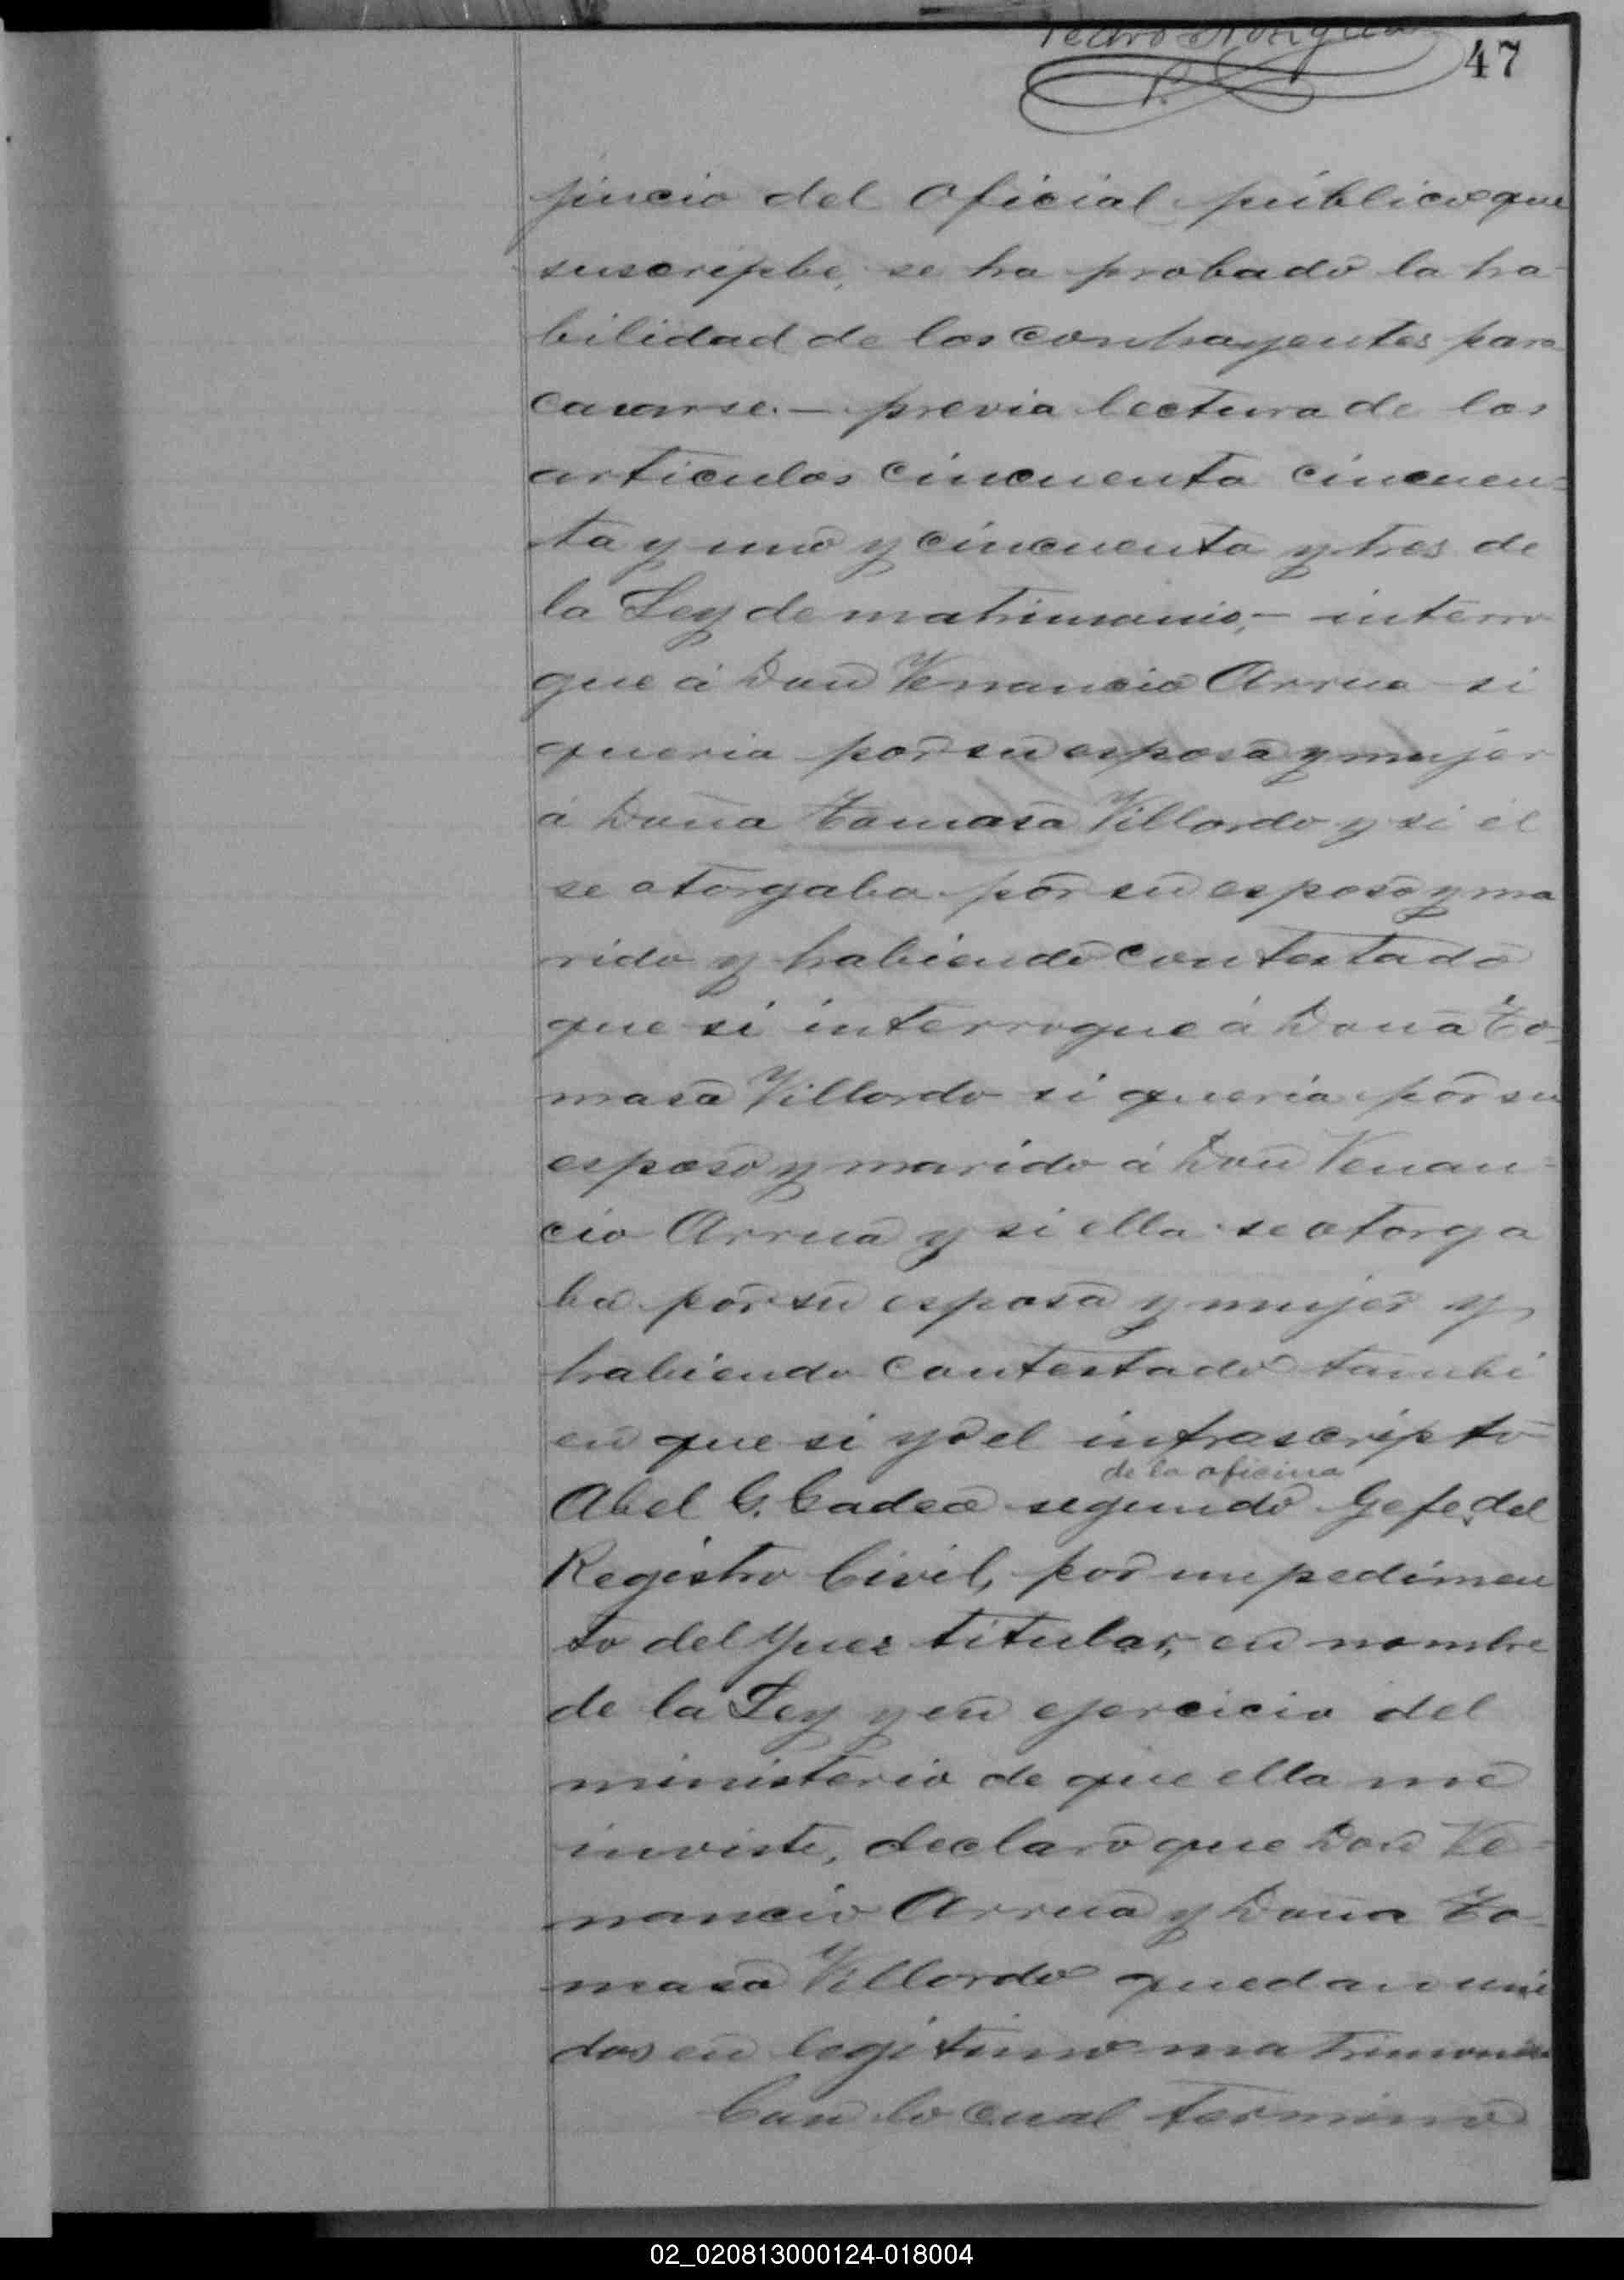 47
juicio del Oficial público que
suscripbe, se ha probado la ha-
bilidad de los contrayentes para
casarse.— previa lectura de los
articulos cincuenta cincuen=
ta y uno y cincuenta y tres de
la Ley de matrimonio,— interro
gue á Don Venancio Arrua si
queria por su esposa y mujer
á Doña Tomasa Villordo y si él
se otorgaba por su esposo y ma
rido y habiendo contestado
que si interrogue á Doña To-
masa Villordo si queria por su
esposo y marido á Don Venan=
cio Arrua y si ella se otorga
ba por su esposa y mujer y
habiendo contestado tambi
en que si yo el infrascripto
de la oficina
Abel G. Gadea segundo Gefe del
Registro Civil, por impedimen
to del Juez titular, en nombre
de la Ley y en ejercicio del
ministerio de que ella me
inviste, declaro que Don Ve=
nancio Arrua y Doña To-
masa Villordo quedan uni
dos en legitimo matrimonio
Con lo cual termino
02_020813000124-018004